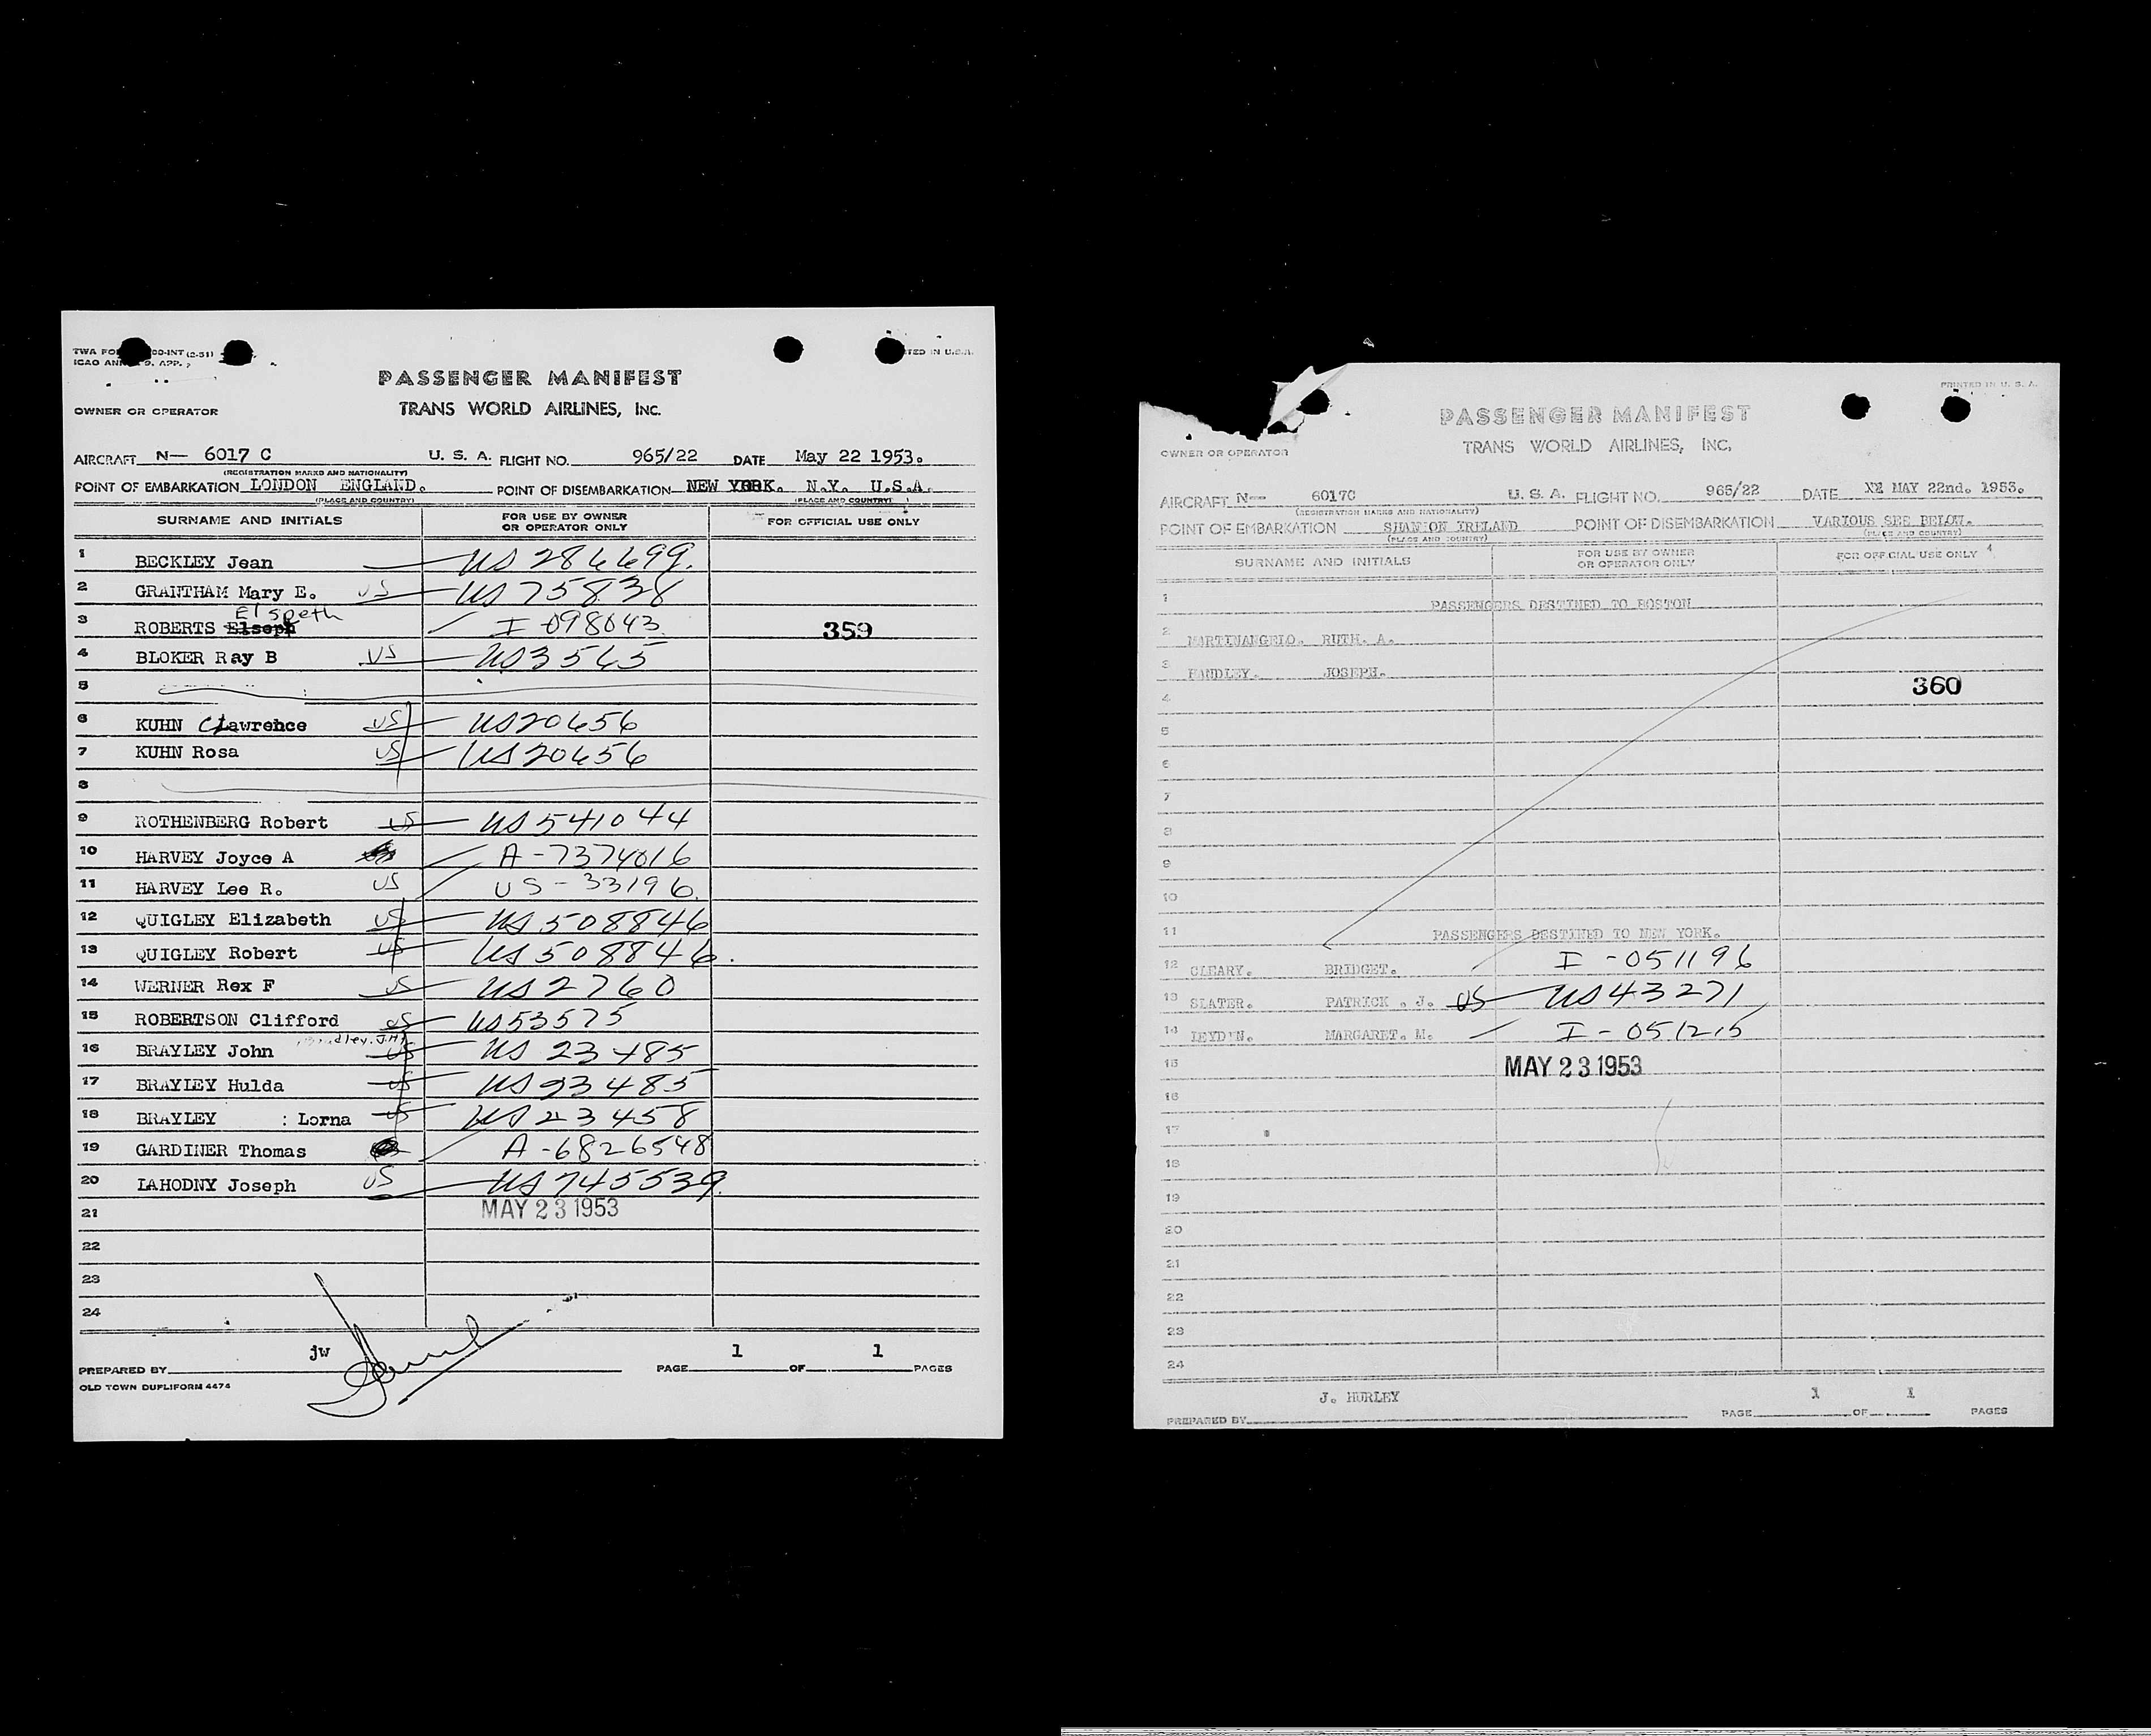 PASSENGER MANIFEST
OWNER OR OPERATOR
TRANS WORLD AIRLINES, INC.
AIRCRAFT N— 6017 C U. S. A. FLIGHT NO. 965/22 DATE May 22 1953.
(REGISTRATION MARKS AND NATIONALITY)
POINT OF EMBARKATION LONDON ENGLAND. POINT OF DISEMBARKATION NEW YORK. N.Y. U.S.A.
(PLACE AND COUNTRY) (PLACE AND COUNTRY)
SURNAME AND INITIALS FOR USE BY OWNER OR OPERATOR ONLY FOR OFFICIAL USE ONLY
1 BECKLEY Jean US 286699.
2 GRANTHAM Mary E. US US 75838
Elspeth
3 ROBERTS Elseph I-098043 359
4 BLOKER Ray B US US3565
5
6 KUHN CLawrence US US20656
7 KUHN Rosa US US20656
8
9 ROTHENBERG Robert US US541044
10 HARVEY Joyce A A-7374016
11 HARVEY Lee R. US US-33196.
12 QUIGLEY Elizabeth US US508846
13 QUIGLEY Robert US US508846.
14 WERNER Rex F US US2760
15 ROBERTSON Clifford US US53575
16 BRAYLEY John US US 23485
17 BRAYLEY Hulda US US23485
18 BRAYLEY : Lorna US US23458
19 GARDINER Thomas A-6826548
20 LAHODNY Joseph US US745539.
21 MAY 23 1953
22
23
24
jw
PREPARED BY PAGE 1 OF 1 PAGES
OLD TOWN DUPLIFORM 4474
PRINTED IN U. S. A.
PASSENGER MANIFEST
OWNER OR OPERATOR
TRANS WORLD AIRLINES, INC.
AIRCRAFT N— 6017C U. S. A. FLIGHT NO. 965/22 DATE MAY 22nd. 1953.
(REGISTRATION MARKS AND NATIONALITY)
POINT OF EMBARKATION SHANNON IRELAND POINT OF DISEMBARKATION VARIOUS SEE BELOW.
(PLACE AND COUNTRY) (PLACE AND COUNTRY)
SURNAME AND INITIALS FOR USE BY OWNER OR OPERATOR ONLY FOR OFFICIAL USE ONLY
1 PASSENGERS DESTINED TO BOSTON
2 MARTINANGELO. RUTH. A.
3 HANDLEY. JOSEPH.
4 360
5
6
7
8
9
10
11 PASSENGERS DESTINED TO NEW YORK.
12 CLEARY. BRIDGET. I-051196
13 SLATER. PATRICK . J. US US43271
14 LEYD'N. MARGARET. M. I-051215
15 MAY 23 1953
16
17
18
19
20
21
22
23
24
J. HURLEY
PREPARED BY PAGE 1 OF 1 PAGES